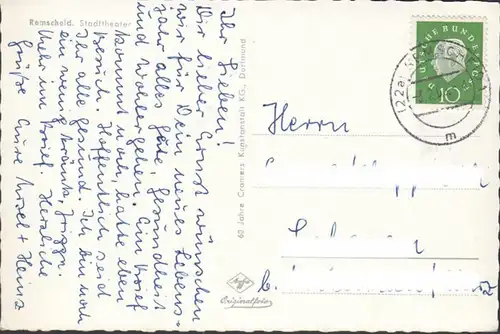 Remscheid. Stadttheater
Ihr Lieben!
Dir lieber Ernst wünschen
wir für Dein neues Lebens-
jahr alles gute, Gesundheit
und Wohlergehen. Ein Brief
kommt noch, hatte eben
Besuch. Hoffentlich seid
Ihr alle gesund. Ich bin noch
ein wenig krank,
Mehr im Brief. Herzliche
Grüße Eure + Heinz
60 Jahre Cramers Kunstanstalt KG., Dortmund
Agfa
Originalfoto
DEUTSCHE BUNDESPOST
10
(22a)
m
Herrn
b.